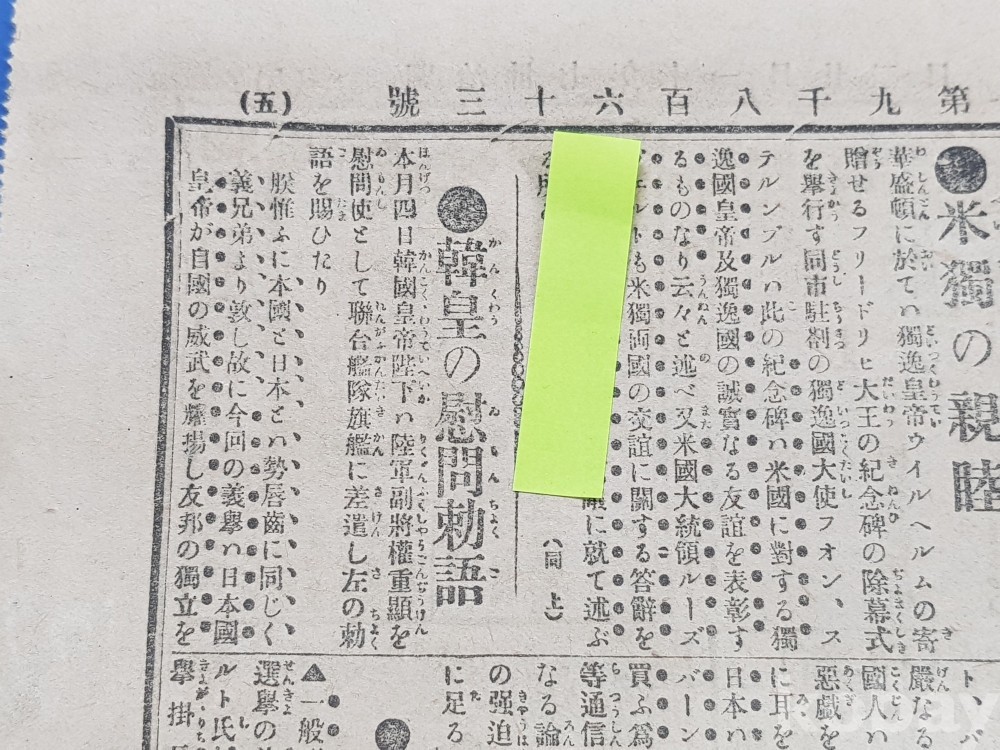 第九千八百六十三號
(五)
●米獨の親睦
華盛頓に於てハ獨逸皇帝ウイルヘルムの寄
贈せるフリードリヒ大王の紀念碑の除幕式
を舉行す同市駐劄の獨逸國大使フオン、ス
テルンブルハ此の紀念碑ハ米國に對する獨
逸國皇帝及獨逸國の誠實なる友誼を表彰す
るものなり云々と述べ又米國大統領ルーズ
も米獨両國の交誼に關する答辭を
に就て述ぶ
(同上)
●韓皇の慰問勅語
本月四日韓國皇帝陛下ハ陸軍副將權重顯を
慰問使として聯合艦隊旗艦に差遣し左の勅
語を賜ひたり
朕惟ふに本國と日本とハ勢唇齒に同じく
義兄弟より敦し故に今回の義擧ハ日本國
皇帝が自國の威武を耀揚し友邦の獨立を
ト、バ
嚴なる
國人ハ
惡戲を
に耳を
日本ハ
バーン
買ふ爲
等通信
なる論
の强迫
に足る
▲一般
選擧の
ルト氏
擧掛